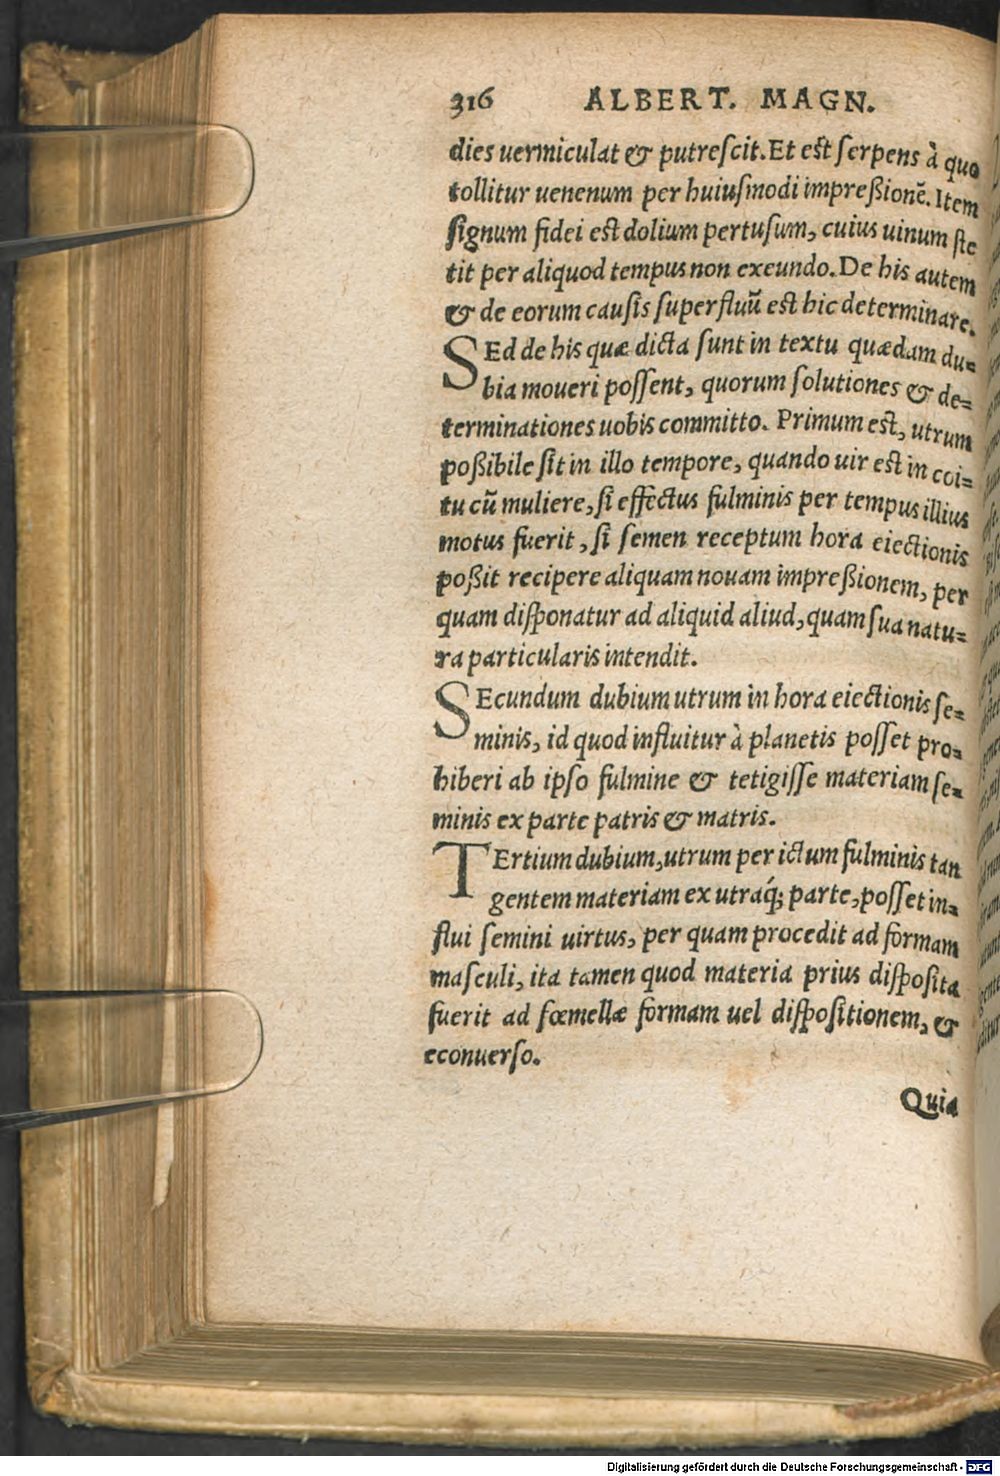 316 ALBERT. MAGN.
dies uermiculat & putreſcit. Et eſt ſerpens à quo
tollitur uenenum per huiuſmodi impreßionē. Item
ſignum fidei eſt dolium pertuſum, cuius uinum ſte
tit per aliquod tempus non exeundo. De his autem
& de eorum cauſis ſuperfluū eſt hic determinare.
SEd de his quæ dicta ſunt in textu quædam du-
bia moueri poſſent, quorum ſolutiones & de-
terminationes uobis committo. Primum eſt, utrum
poßibile ſit in illo tempore, quando uir eſt in coi-
tu cū muliere, ſi effectus fulminis per tempus illius
motus fuerit, ſi ſemen receptum hora eiectionis
poßit recipere aliquam nouam impreßionem, per
quam diſponatur ad aliquid aliud, quam ſua natu-
ra particularis intendit.
SEcundum dubium utrum in hora eiectionis ſe-
minis, id quod influitur à planetis poſſet pro-
hiberi ab ipſo fulmine & tetigiſſe materiam ſe-
minis ex parte patris & matris.
TErtium dubium, utrum per ictum fulminis tan
gentem materiam ex utraq́; parte, poſſet in-
flui ſemini uirtus, per quam procedit ad formam
maſculi, ita tamen quod materia prius diſpoſita
fuerit ad fœmellæ formam uel diſpoſitionem, &
econuerſo.
Quia
Digitalisierung gefördert durch die Deutsche Forschungsgemeinschaft - DFG